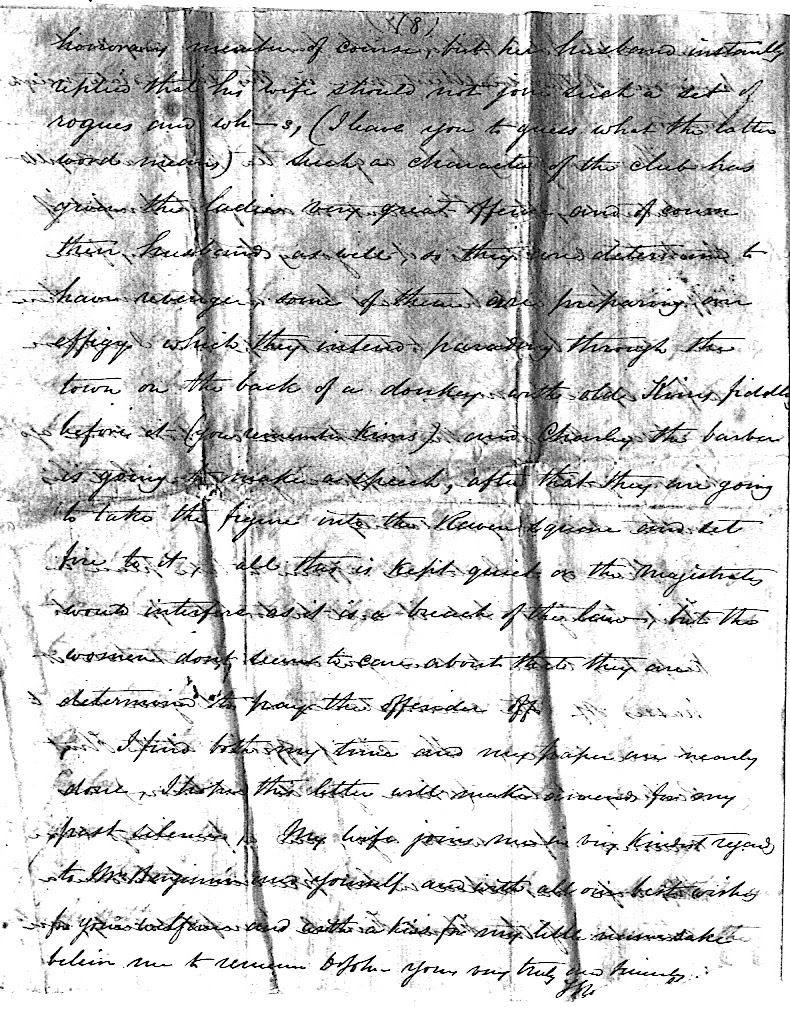 (8)
honorary member of course, but her husband instantly
replied that his wife should not join such a set of
rogues and wh—s, (I leave you to guess what the latter
word means) such a character of the club has
given the ladies very great offence and of course
their husbands as well, so they are determined to
have revenge, some of them are preparing an
effigy which they intend parading through the
town on the back of a donkey with old Kims fiddling
before it (you remember Kims) and Charley the barber
is going to make a speech, after that they are going
to take the figure into the Square and set
fire to it, all this is kept quiet or the Magistrates
would interfere as it is a breach of the law, but the
women dont seem to care about that they are
determined to pay the offender off
I find both my time and my paper are nearly
done, I hope this letter will make amends for my
past silence, My wife joins me in very kindest regards
to Mrs Benjamin and yourself and with all our best wishes
for your welfare and with a kiss for my little namesake
believe me to remain yours very truly and